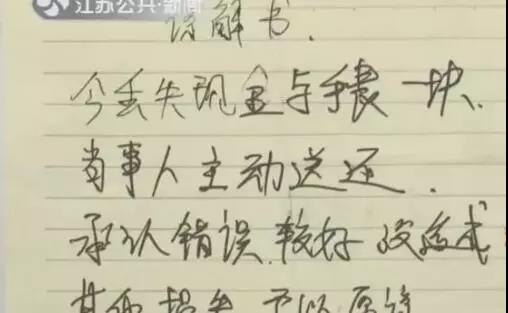 江苏公共·新闻
谅解书.
今丢失现金与手表一块、
当事人主动送还.
承认错误较好 没造成
其他损失 予以原谅